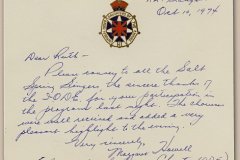 Oct 10, 1974
Dear Ruth -
Please convey to all the Salt
Spring Singers, the sincere thanks of
the I.O.D.E. for your participation in
the program last night. The choruses
were well received and added a very
pleasant highlight to the evening.
Very sincerely,
Howell